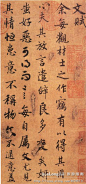 文賦
余每觀材士之作竊有以得其
心夫其放言遣辭良多變矣妍
蚩好惡可得而言每自屬文尤見
其情恒患意不稱物文不逮意蓋